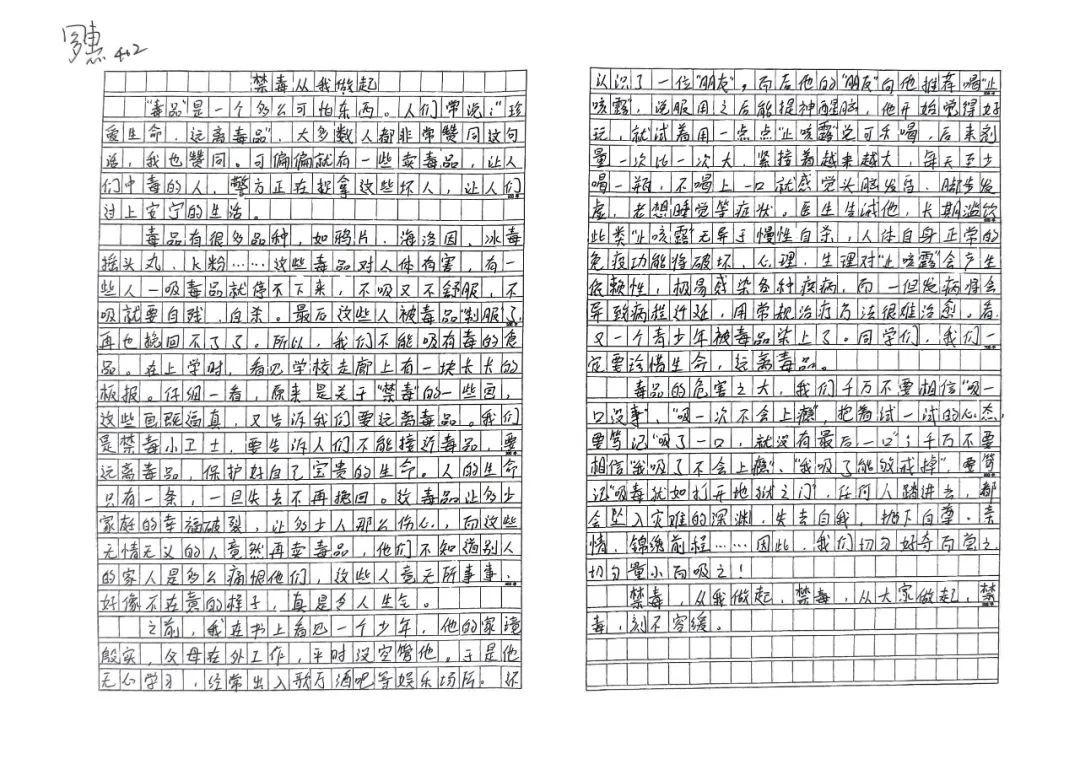 402
禁毒从我做起
“毒品”是一个多么可怕东西。人们常说：“珍
爱生命，远离毒品”，大多数人都非常赞同这句
话，我也赞同。可偏偏就有一些卖毒品，让人
们中毒的人，警方正在捉拿这些坏人，让人们
过上安宁的生活。
毒品有很多品种，如鸦片、海洛因、冰毒
摇头丸、K粉……这些毒品对人体有害，有一
些人一吸毒品就停不下来，不吸又不舒服，不
吸就要自残、自杀。最后这些人被毒品“制服”了，
再也挽回不了了。所以，我们不能吸有毒的危
品。在上学时，看见学校走廊上有一块长长的
板报。仔细一看，原来是关于“禁毒”的一些画，
这些画既逼真，又告诉我们要远离毒品。我们
是禁毒小卫士，要告诉人们不能接近毒品，要
远离毒品，保护好自己宝贵的生命。人的生命
只有一条，一旦失去不再挽回。这毒品让多少
家庭的幸福破裂，让多少人那么伤心，而这些
无情无义的人竟然再卖毒品，他们不知道别人
的家人是多么痛恨他们，这些人竟无所事事、
好像不在意的样子，真是令人生气。
之前，我在书上看见一个少年，他的家境
殷实，父母在外工作，平时没空管他。于是他
无心学习，经常出入歌厅酒吧等娱乐场所。还
认识了一位“朋友”，而后他的“朋友”向他推荐喝“止
咳露”，说服用之后能提神醒脑，他开始觉得好
玩，就试着用一点点“止咳露”兑可乐喝，后来剂
量一次比一次大，紧接着越来越大，每天至少
喝一瓶，不喝上一口就感觉头脑发昏、脚步发
虚，老想睡觉等症状。医生告诫他，长期滥饮
此类“止咳露”无异于慢性自杀，人体自身正常的
免疫功能将破坏，心理、生理对“止咳露”会产生
依赖性，极易感染各种疾病，而一但发病将会
导致病程迁延，用常规治疗方法很难治愈。看，
又一个青少年被毒品染上了。同学们，我们一
定要珍惜生命，远离毒品。
毒品的危害之大，我们千万不要相信“吸一
口没事”、“吸一次不会上瘾”，抱着试一试的心态，
要笃记“吸了一口，就没有最后一口”；千万不要
相信“我吸了不会上瘾”、“我吸了能够戒掉”，要笃
记“吸毒就如打开地狱之门”，任何人踏进去，都
会坠入灾难的深渊，失去自我，抛下自尊、亲
情、锦绣前程……因此，我们切勿好奇而尝之，
切勿量小而吸之！
禁毒，从我做起，禁毒，从大家做起，禁
毒，刻不容缓。